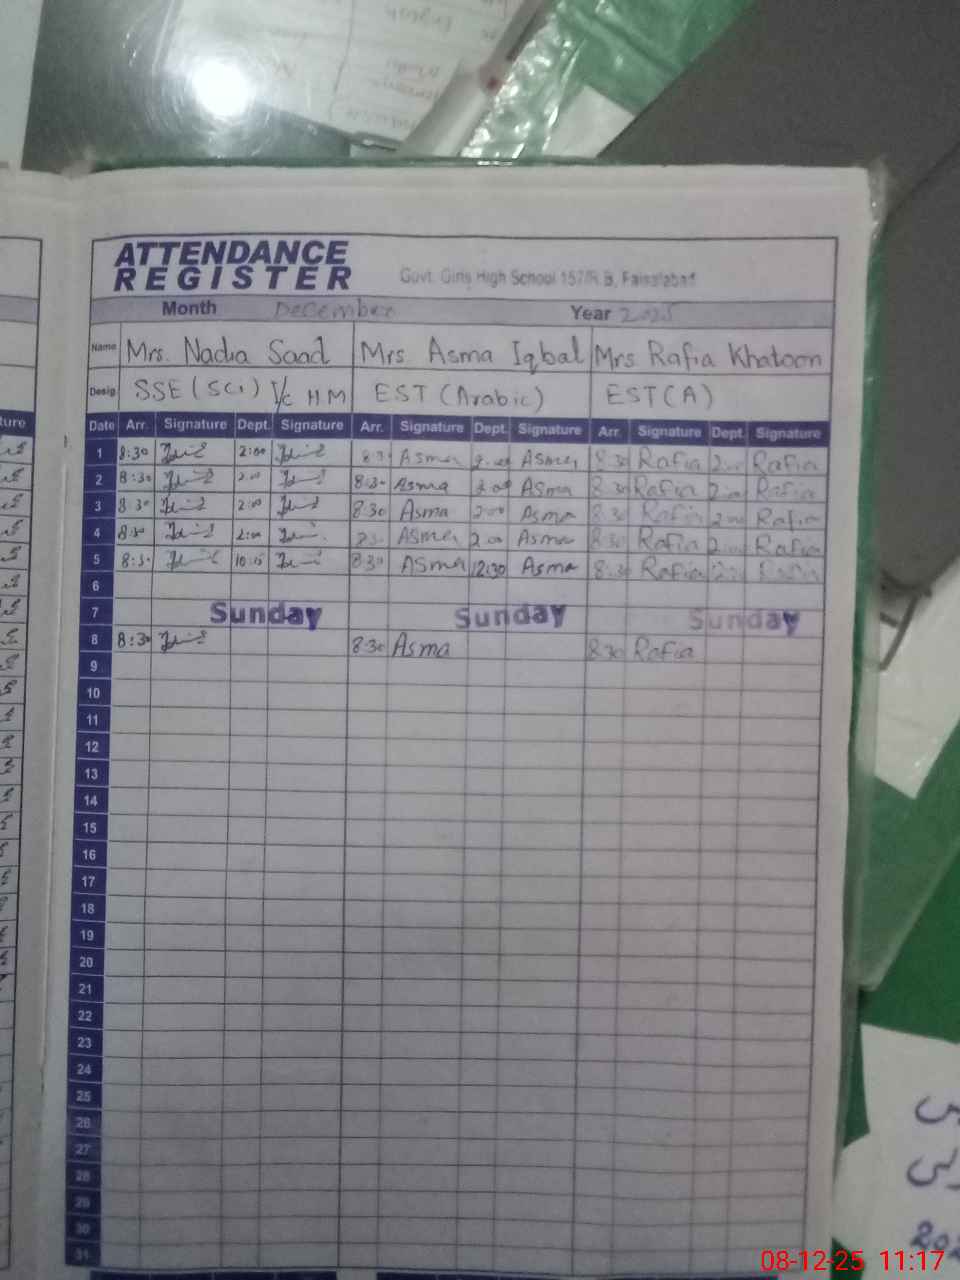 ATTENDANCE
REGISTER
Govt. Girls High School 157/R.B, Faisalabad
Month December Year 2025
Name Mrs. Nadia Saad Mrs Asma Iqbal Mrs Rafia Khatoon
Desig SSE (SCI) I/c HM EST (Arabic) EST (A)
Date Arr. Signature Dept. Signature Arr. Signature Dept. Signature Arr. Signature Dept. Signature
1 8:30 2:00 Asma Asma 8:30 Rafia 2:00 Rafia
2 8:30 2:00 8:30 Asma 2:00 Asma 8:30 Rafia 2:00 Rafia
3 8:30 2:00 8:30 Asma 2:00 Asma 8:30 Rafia 2:00 Rafia
4 8:30 2:00 Asma 2:00 Asma 8:30 Rafia 2:00 Rafia
5 8:30 8:30 Asma 12:30 Asma 8:30 Rafia Rafia
6
7 Sunday Sunday Sunday
8 8:30 8:30 Asma 8:30 Rafia
9
10
11
12
13
14
15
16
17
18
19
20
21
22
23
24
25
26
27
28
29
30
31
08-12-25 11:17